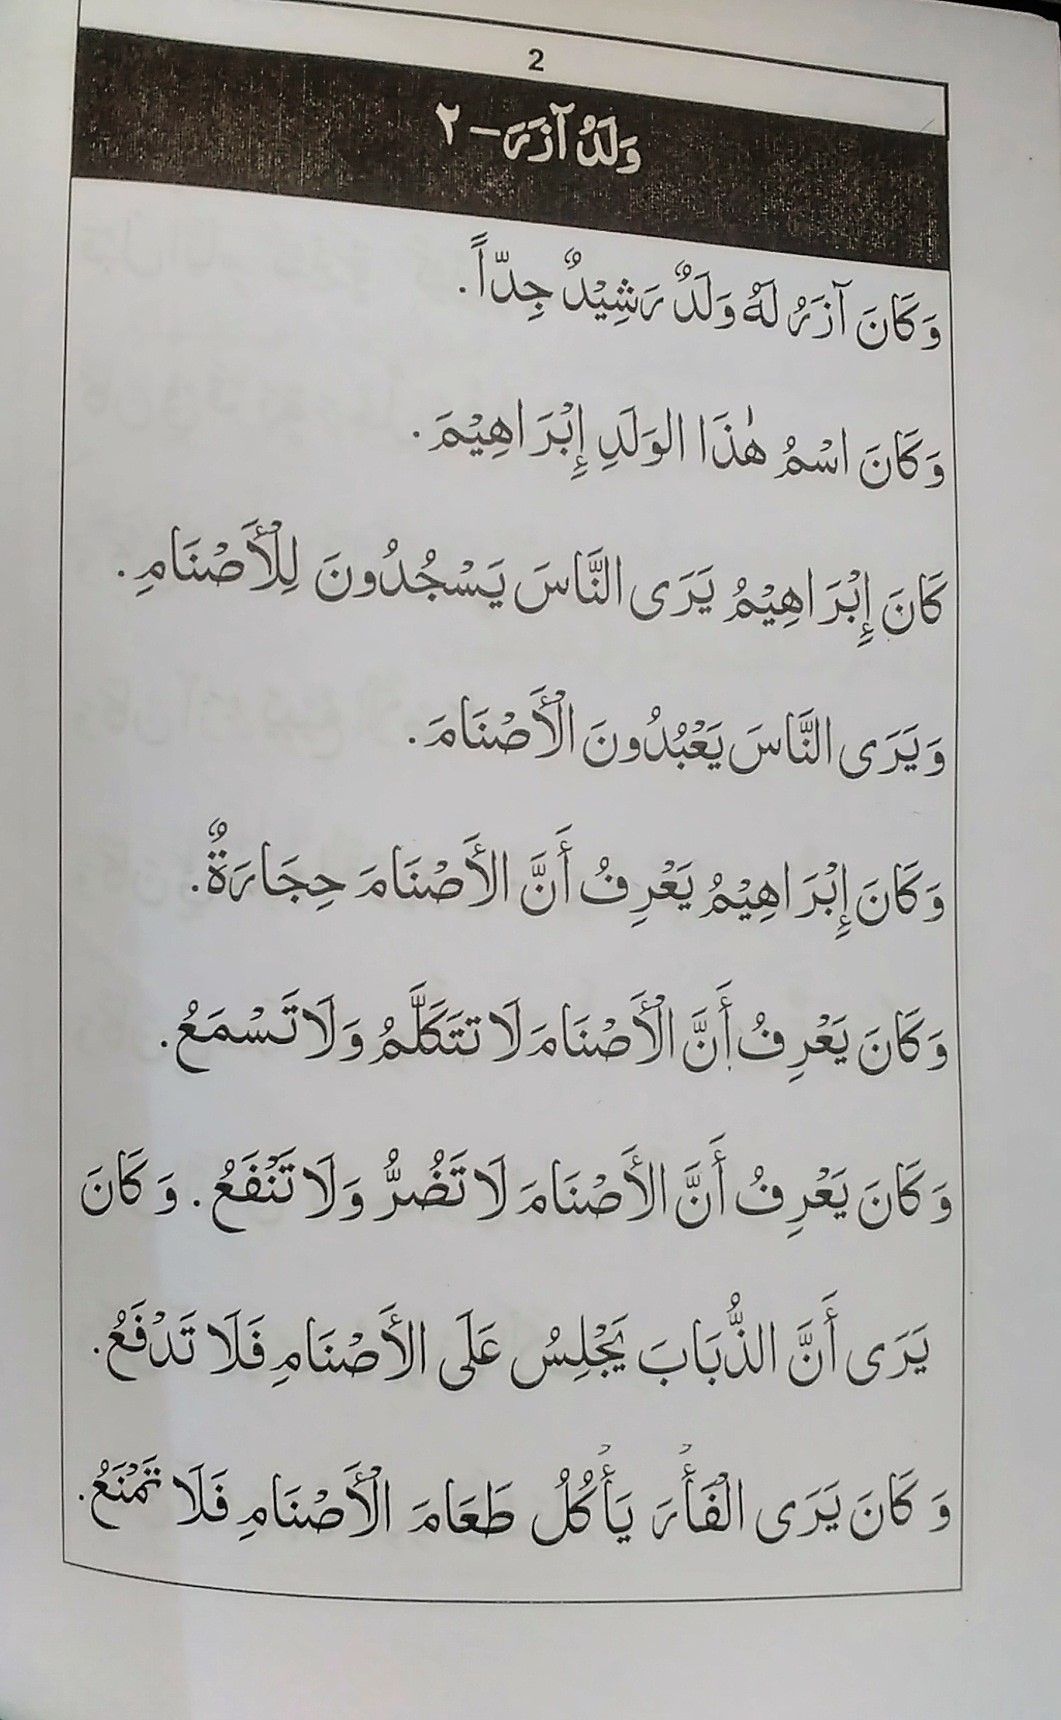 2
وَلَدُ آزَرَ – ٢
وَكَانَ آزَرُ لَهُ وَلَدٌ رَشِيْدٌ جِدّاً.
وَكَانَ اسْمُ هٰذَا الوَلَدِ إِبْرَاهِيْمَ.
كَانَ إِبْرَاهِيْمُ يَرَى النَّاسَ يَسْجُدُونَ لِلْأَصْنَامِ.
وَيَرَى النَّاسَ يَعْبُدُونَ الْأَصْنَامَ.
وَكَانَ إِبْرَاهِيْمُ يَعْرِفُ أَنَّ الأَصْنَامَ حِجَارَةٌ.
وَكَانَ يَعْرِفُ أَنَّ الْأَصْنَامَ لَا تَتَكَلَّمُ وَلَا تَسْمَعُ.
وَكَانَ يَعْرِفُ أَنَّ الأَصْنَامَ لَا تَضُرُّ وَلَا تَنْفَعُ. وَكَانَ
يَرَى أَنَّ الذُّبَابَ يَجْلِسُ عَلَى الأَصْنَامِ فَلَا تَدْفَعُ.
وَكَانَ يَرَى الْفَأْرَ يَأْكُلُ طَعَامَ الْأَصْنَامِ فَلَا تَمْنَعُ.